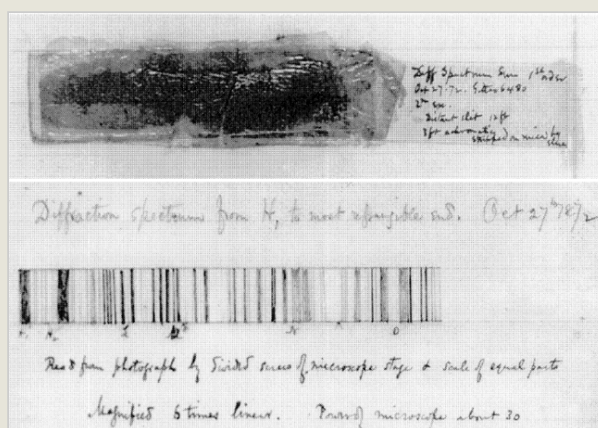 Diff Spectrum Sun 1st order
Oct 27. 72. 6480
Distant slit 12ft
3ft achromatic
stripped on mica by
Diffraction spectrum from H, to most refrangible end. Oct 27th 1872
L M N O
Read from photograph by divided screw of microscope stage & scale of equal parts
Magnified 6 times linear. Power of microscope about 30